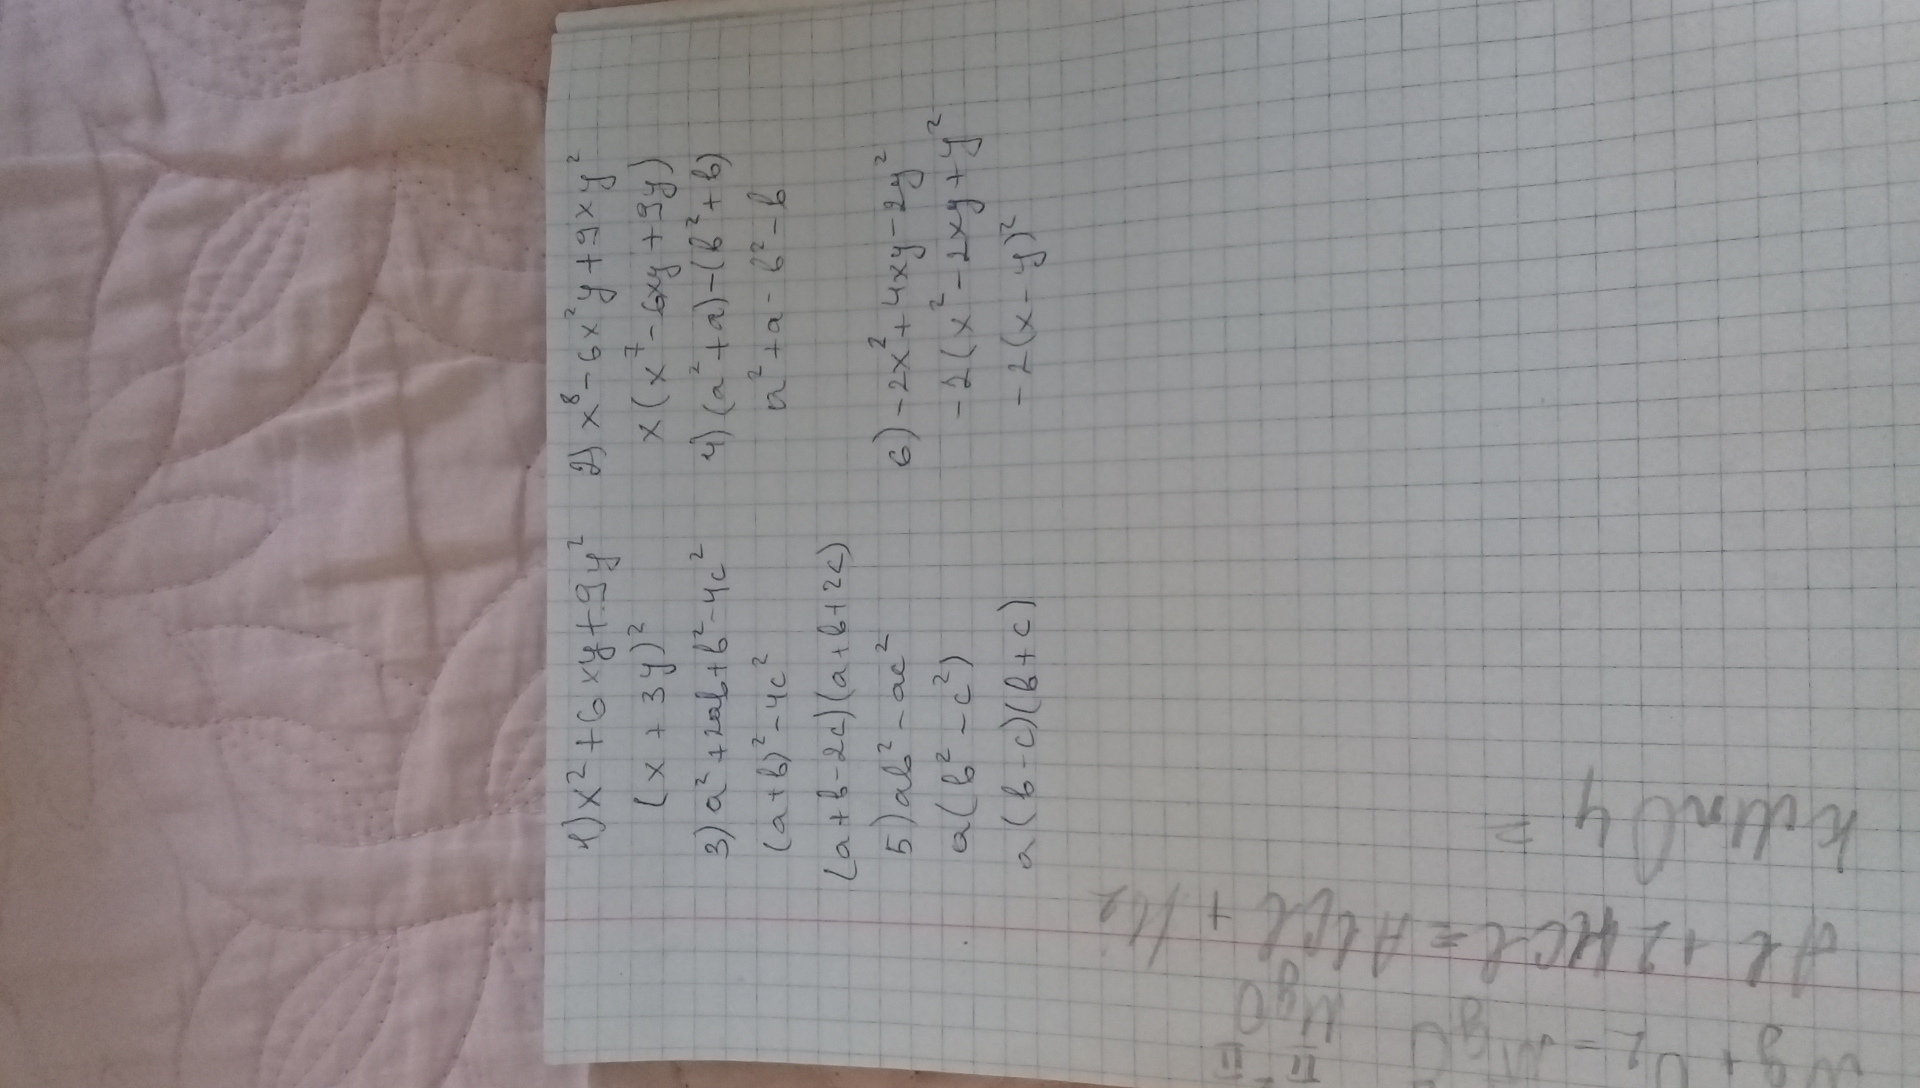 1) x² + 6xy + 9y²
(x + 3y)²
2) x⁸ - 6x²y + 9xy²
x(x⁷ - 6xy + 9y)
3) a² + 2ab + b² - 4c²
(a+b)² - 4c²
(a+b-2c)(a+b+2c)
4) (a² + a) - (b² + b)
a² + a - b² - b
5) ab² - ac²
a(b² - c²)
a(b-c)(b+c)
6) -2x² + 4xy - 2y²
-2(x² - 2xy + y²
-2(x-y)²
Mg + O₂ = MgO
II II
MgO
Al + 2HCl = AlCl + H₂
KMnO4 =